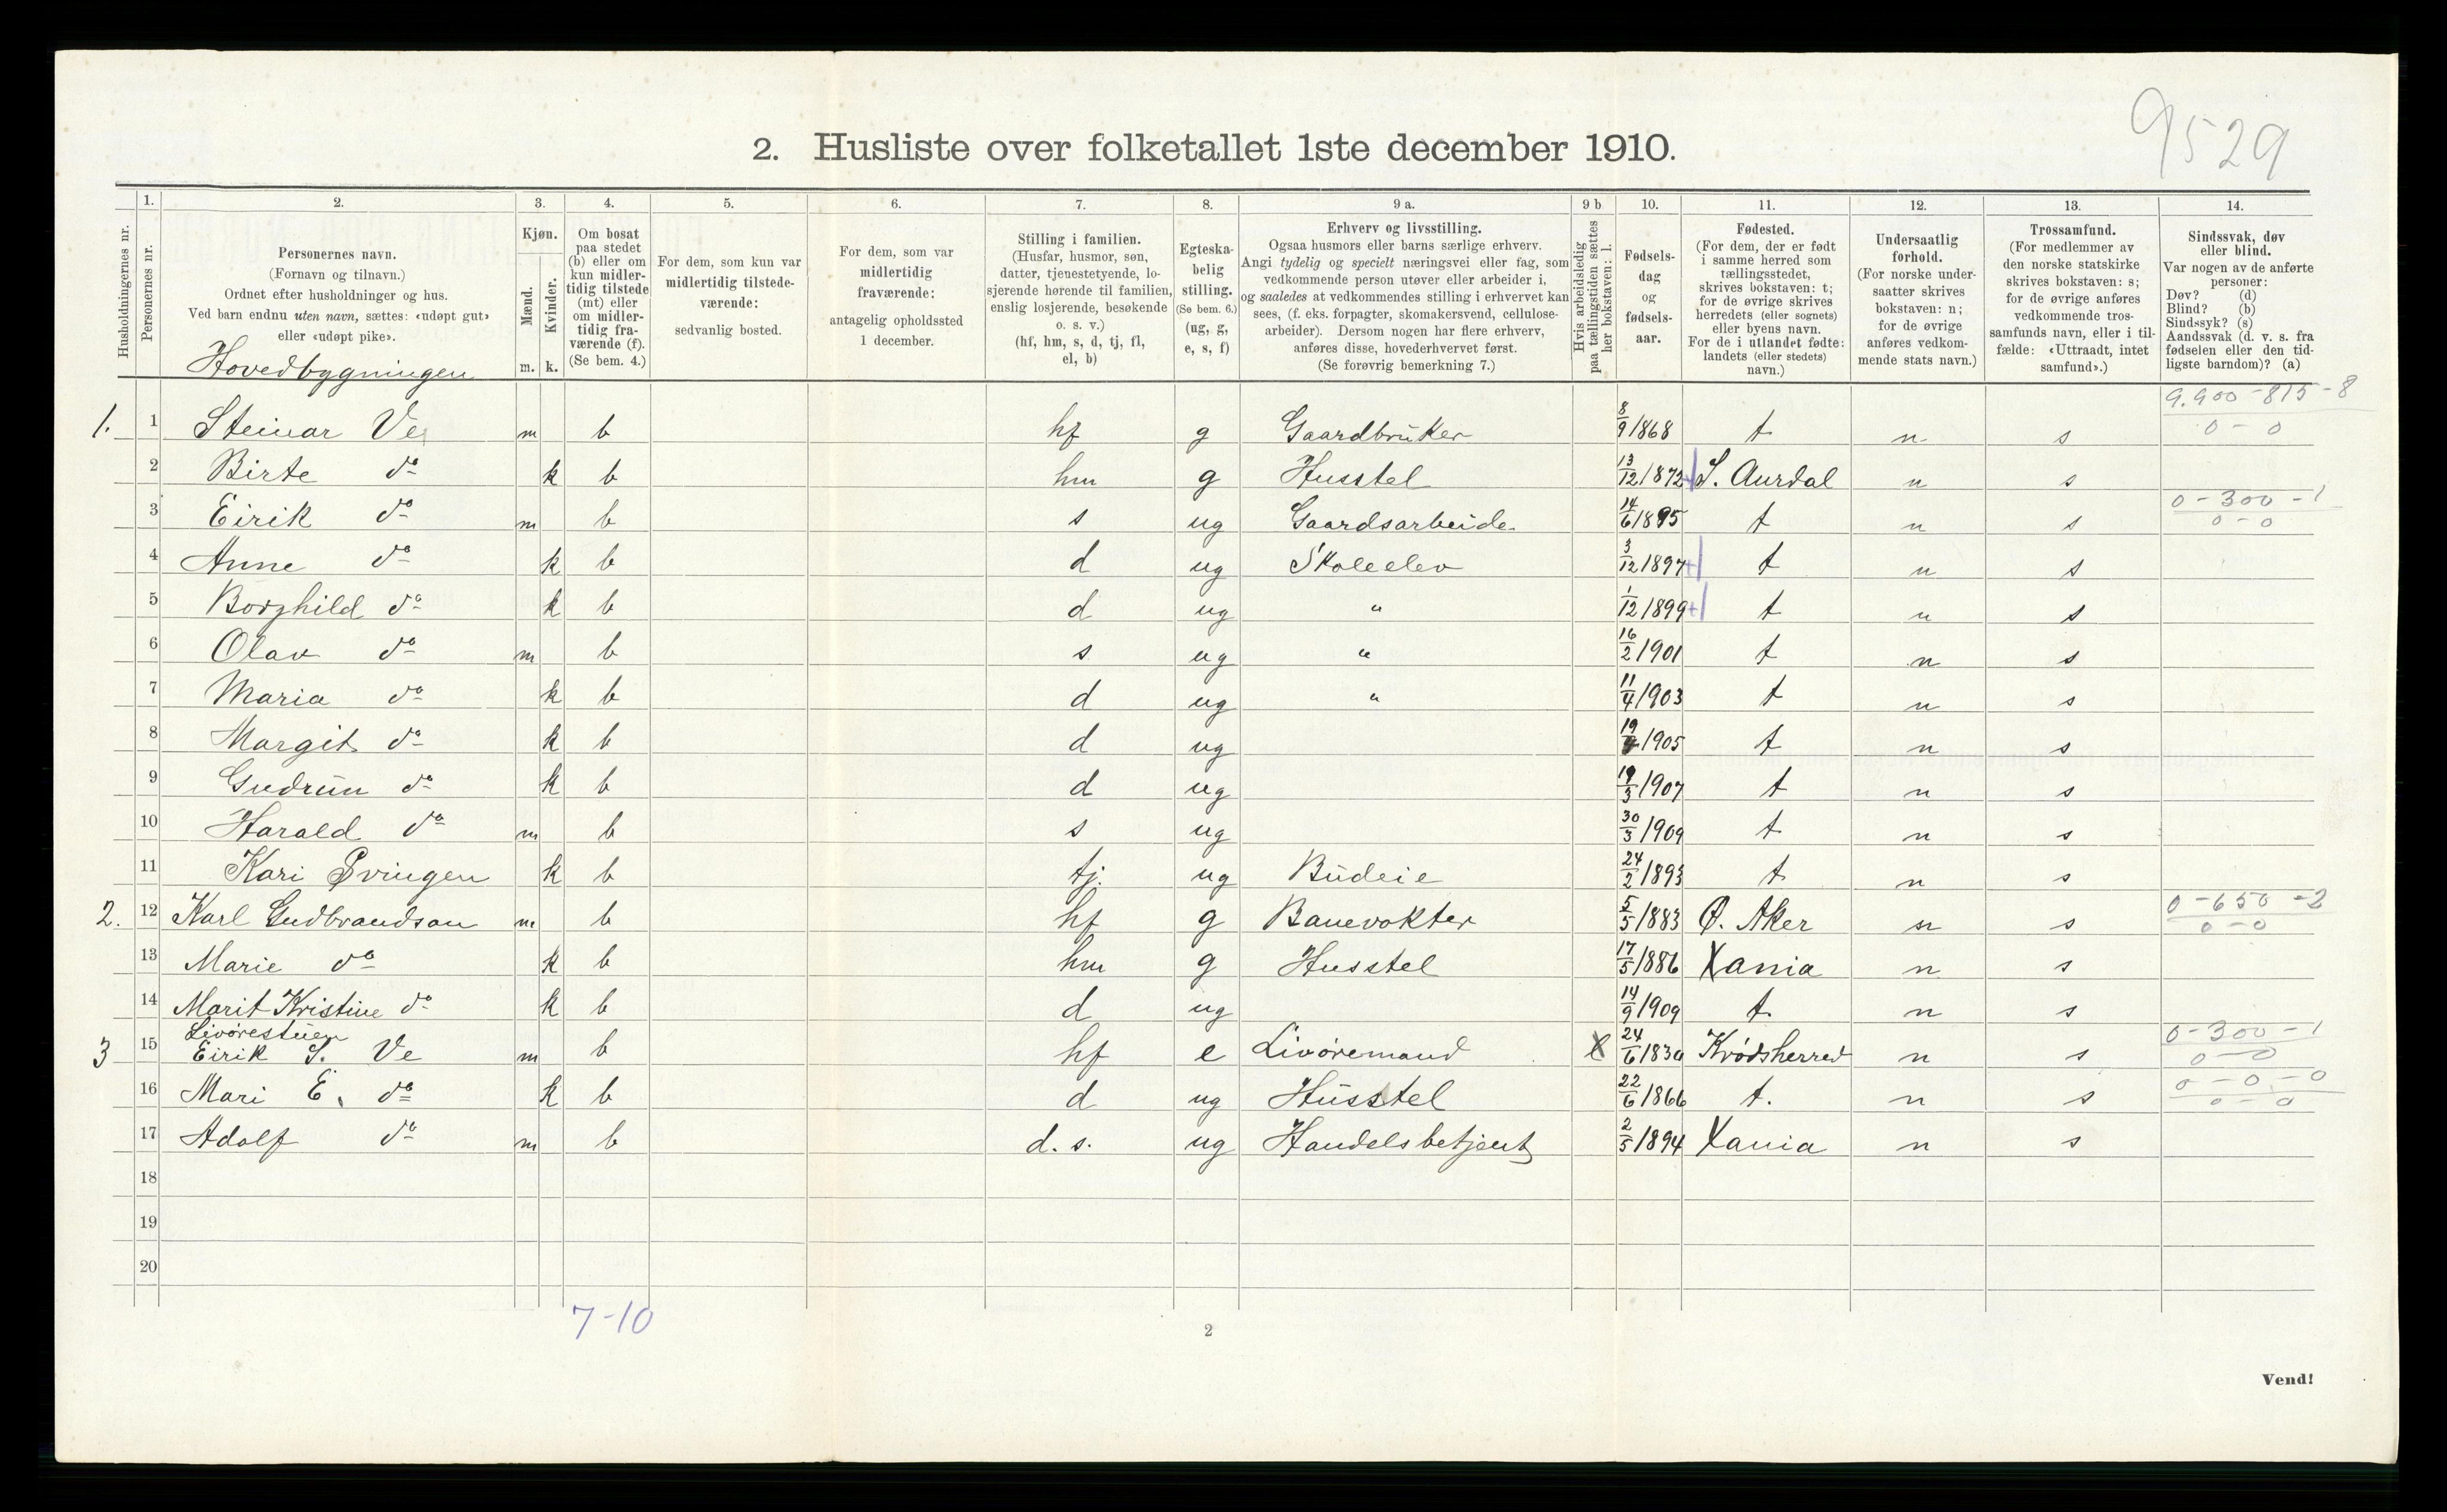 9529
2. Husliste over folketallet 1ste december 1910.
1. 2. 3. 4. 5. 6. 7. 8. 9 a. 9 b 10. 11. 12. 13. 14.
Husholdningernes nr.
Personernes nr.
Personernes navn.
(Fornavn og tilnavn.)
Ordnet efter husholdninger og hus.
Ved barn endnu uten navn, sættes: «udøpt gut»
eller «udøpt pike».
Kjøn.
Mænd.
Kvinder.
m. k.
Om bosat
paa stedet
(b) eller om
kun midler-
tidig tilstede
(mt) eller
om midler-
tidig fra-
værende (f).
(Se bem. 4.)
For dem, som kun var
midlertidig tilstede-
værende:
sedvanlig bosted.
For dem, som var
midlertidig
fraværende:
antagelig opholdssted
1 december.
Stilling i familien.
(Husfar, husmor, søn,
datter, tjenestetyende, lo-
sjerende hørende til familien,
enslig losjerende, besøkende
o. s. v.)
(hf, hm, s, d, tj, fl,
el, b)
Egteska-
belig
stilling.
(Se bem. 6.)
(ug, g,
e, s, f)
Erhverv og livsstilling.
Ogsaa husmors eller barns særlige erhverv.
Angi tydelig og specielt næringsvei eller fag, som
vedkommende person utøver eller arbeider i,
og saaledes at vedkommendes stilling i erhvervet kan
sees, (f. eks. forpagter, skomakersvend, cellulose-
arbeider). Dersom nogen har flere erhverv,
anføres disse, hovederhvervet først.
(Se forøvrig bemerkning 7.)
Hvis arbeidsledig
paa tællingstiden sættes
her bokstaven: l.
Fødsels-
dag
og
fødsels-
aar.
Fødested.
(For dem, der er født
i samme herred som
tællingsstedet,
skrives bokstaven: t;
for de øvrige skrives
herredets (eller sognets)
eller byens navn.
For de i utlandet fødte:
landets (eller stedets)
navn.)
Undersaatlig
forhold.
(For norske under-
saatter skrives
bokstaven: n;
for de øvrige
anføres vedkom-
mende stats navn.)
Trossamfund.
(For medlemmer av
den norske statskirke
skrives bokstaven: s;
for de øvrige anføres
vedkommende tros-
samfunds navn, eller i til-
fælde: «Uttraadt, intet
samfund».)
Sindssvak, døv
eller blind.
Var nogen av de anførte
personer:
Døv? (d)
Blind? (b)
Sindssyk? (s)
Aandssvak (d. v. s. fra
fødselen eller den tid-
ligste barndom)? (a)
Hovedbygningen
9.900-815-8
1. 1 Steinar Ve m b hf g Gaardbruker 8/9 1868 t n s 0-0
2 Birte do k b hm g Husstel 13/12 1872 S. Aurdal n s
3 Eirik do m b s ug Gaardsarbeide 14/6 1895 t n s 0-300-1 0-0
4 Anne do k b d ug Skoleelev 3/12 1897 t n s
5 Borghild do k b d ug " 1/12 1899 t n s
6 Olav do m b s ug " 16/2 1901 t n s
7 Maria do k b d ug " 11/4 1903 t n s
8 Margit do k b d ug 19/ 1905 t n s
9 Gudrun do k b d ug 19/3 1907 t n s
10 Harald do m b s ug 30/3 1909 t n s
11 Kari Øvingen k b tj. ug Budeie 24/2 1893 t n s
2. 12 Karl Gudbrandson m b hf g Banevokter 5/5 1883 Ø. Aker n s 0-650-2 0-0
13 Marie do k b hm g Husstel 17/5 1886 Xania n s
14 Marit Kristine do k b d ug 14/9 1909 t. n s
Livørestuen
3 15 Eirik S. Ve m b hf e Livøremand X 24/6 1830 Krødsherred n s 0-300-1 0-0
16 Mari E. do k b d ug Husstel 22/6 1866 t. n s 0-0-0 0-0
17 Adolf do m b d. s. ug Handelsbetjent 2/5 1894 Xania n s
18
19
20
7-10
2
Vend!